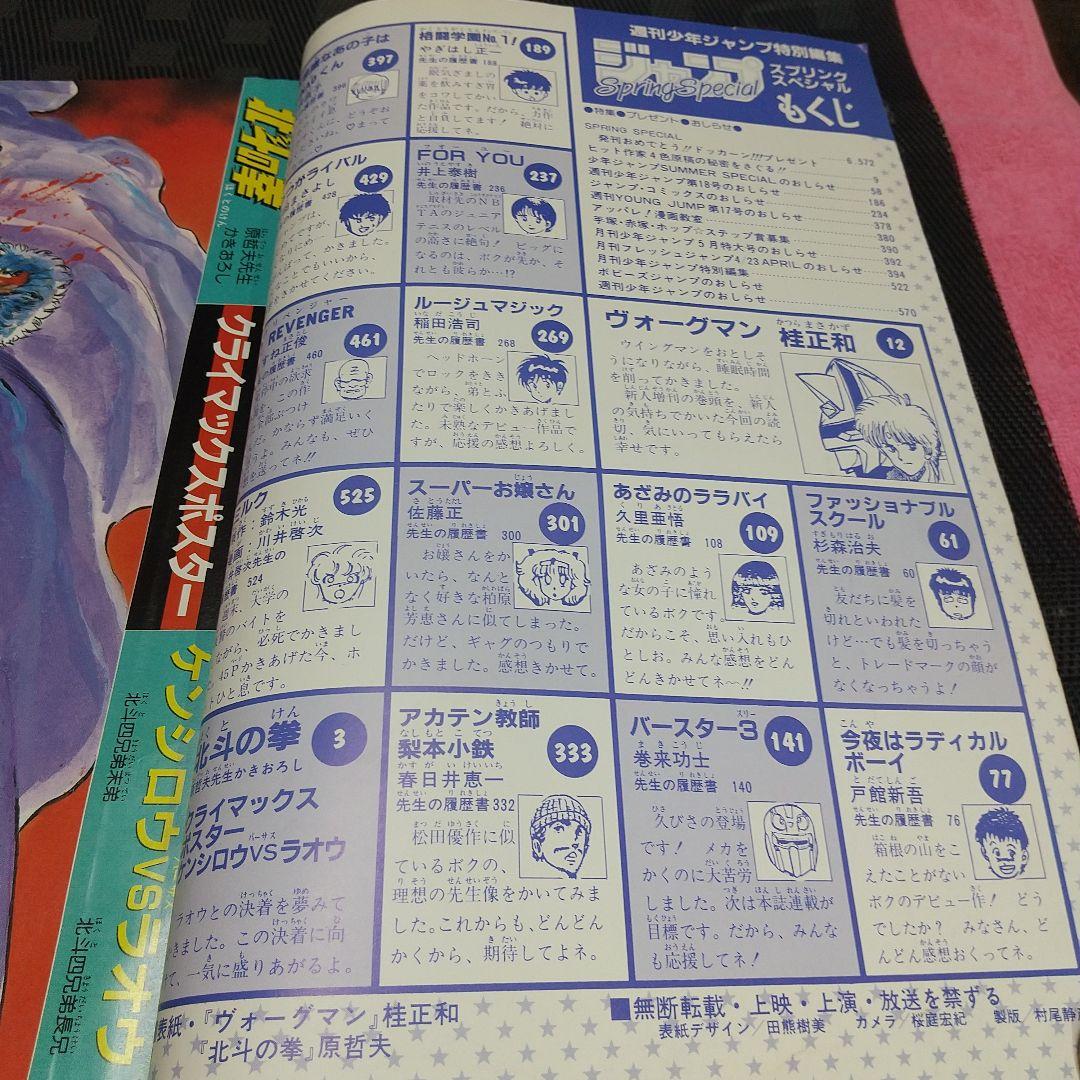 週刊少年ジャンプ特別編集
ジャンプ
SpringSpecial
スプリング
スペシャル
もくじ
●特集●プレゼント●おしらせ●
SPRING SPECIAL
発刊おめでとう!!ドッカーン!!!プレゼント 6.572
ヒット作家4色原稿の秘密をさぐる!! 9
少年ジャンプSUMMER SPECIALのおしらせ 58
週刊少年ジャンプ第18号のおしらせ 186
ジャンプ・コミックスのおしらせ 234
週刊YOUNG JUMP第17号のおしらせ 378
アッパレ!漫画教室 380
手塚・赤塚・ホップ☆ステップ賞募集 390
月刊少年ジャンプ5月特大号のおしらせ 392
月刊フレッシュジャンプ4/23APRILのおしらせ 394
月刊少年ジャンプ特別編集
ポピーズジャンプのおしらせ 522
週刊少年ジャンプのおしらせ 570
ヴォーグマン 桂正和 12
ウイングマンをおとしそ
うになりながら、睡眠時間
を削ってかきました。
新人増刊の巻頭を、新人
の気持ちでかいた今回の読
切、気にいってもらえたら
幸せです。
ファッショナブル
スクール
杉森治夫
先生の履歴書 60
61
友だちに髪を
切れといわれた
けど…でも髪を切っちゃう
と、トレードマークの顔が
なくなっちゃうよ!
今夜はラディカル
ボーイ
戸館新吾
先生の履歴書 76
77
箱根の山をこ
えたことがない
ボクのデビュー作! どう
でしたか? みなさん、ど
んどん感想おくってネ。
あざみのララバイ
久里亜悟
先生の履歴書 108
109
あざみのよう
な女の子に憧れ
ているボクです。
だからこそ、思い入れもひ
としお。みんな感想をどん
どんきかせてネ〜!!
バースター3
巻来功士
先生の履歴書 140
141
久びさの登場
です! メカを
かくのに大苦労
しました。次は本誌連載が
目標です。だから、みんな
も応援してネ!
格闘学園No.1!
やぎはし正一
先生の履歴書 188
189
眠気ざましの
薬を飲みすぎ胃
をコワしてかい
た作品です。だから、力作
と自負してます! 絶対に
応援してネ。
FOR YOU
井上泰樹
先生の履歴書 236
237
取材先のNB
TAのジュニア
テニスのレベル
の高さに絶句! ビッグに
なるのは、ボクが先か、そ
れとも彼らか…!?
ルージュマジック
稲田浩司
先生の履歴書 268
269
ヘッドホーン
でロックをきき
ながら、弟とふ
たりで楽しくかきあげまし
た。未熟なデビュー作品で
すが、応援の感想よろしく。
スーパーお嬢さん
佐藤正
先生の履歴書 300
301
お嬢さんをか
いたら、なんと
なく好きな柏原
芳恵さんに似てしまった。
だけど、ギャグのつもりで
かきました。感想きかせて。
アカテン教師
梨本小鉄
春日井恵一
先生の履歴書 332
333
松田優作に似
ているボクの、
理想の先生像をかいてみま
した。これからも、どんどん
かくから、期待してよネ。
なあの子は
くん
397
396
どうぞお
まって
がライバル
きよし
428
429
REVENGER
すね正俊
の履歴書 460
461
中の欲求
この作
ぶつけ
だ。かならず満足いく
うよ。みんなも、ぜひ
ってネ!
ミルク
鈴木光
川井啓次
啓次先生の
524
525
大学の
のバイトを
ながら、必死でかきまし
45Pかきあげた今、ホ
とひと息です。
北斗の拳
3
哲夫先生かきおろし
クライマックス
ポスター
ケンシロウVSラオウ
ラオウとの決着を夢みて
かきました。この決着に向
て、一気に盛りあがるよ。
表紙・『ヴォーグマン』桂正和
『北斗の拳』原哲夫
■無断転載・上映・上演・放送を禁ずる
表紙デザイン 田熊樹美 カメラ 桜庭宏紀 製版 村尾静
北斗の拳
原哲夫先生
かきおろし
クライマックスポスター
ケンシロウVSラオウ
北斗四兄弟末弟
北斗四兄弟長兄